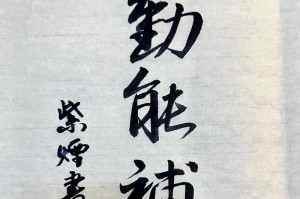 勤能補
紫煙書